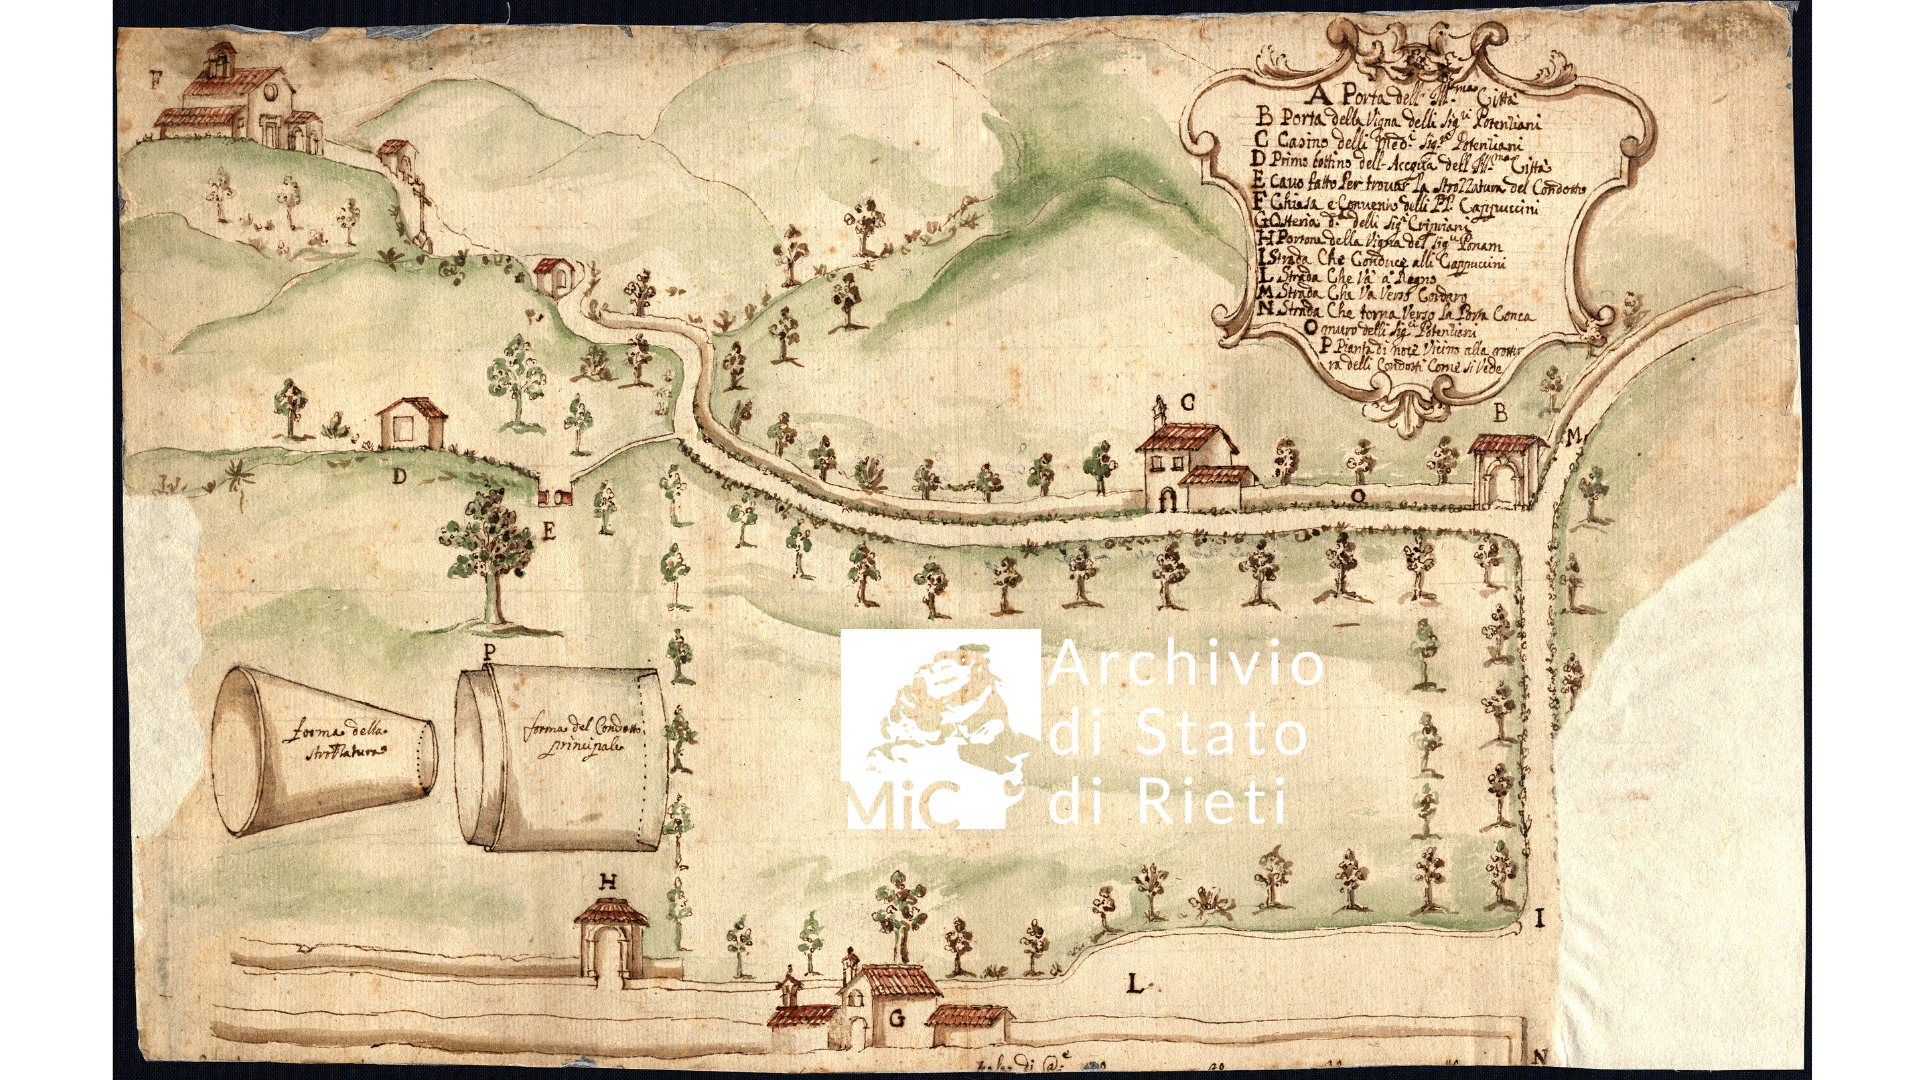 F
A Porta dell' Ill.ma Città
B Porta della Vigna delli Sig.ri Potenziani
C Casino delli Med.i Sig.ri Potenziani
D Primo bottino dell'Accqua dell'Ill.ma Città
E Cavo fatto Per trovar la Strozzatura del Condotto
F Chiesa e Convento delli PP. Cappuccini
G Osteria d. delli Sig.ri Cipriani
H Portone della Vigna del Sig.
I Strada Che Conduce alli Cappuccini
L Strada Che Va a Regno
M Strada Che Va Verso
N Strada Che torna Verso la Porta Conca
O muro delli Sig.ri Potenziani
P Pianta di noce Vicino alla rottu
ra delli Condotti Come si Vede
C
B
M
D
O
E
P
forma della
strozzatura
forma del Condotto
principale
Archivio
di Stato
di Rieti
MiC
H
I
L
G
N